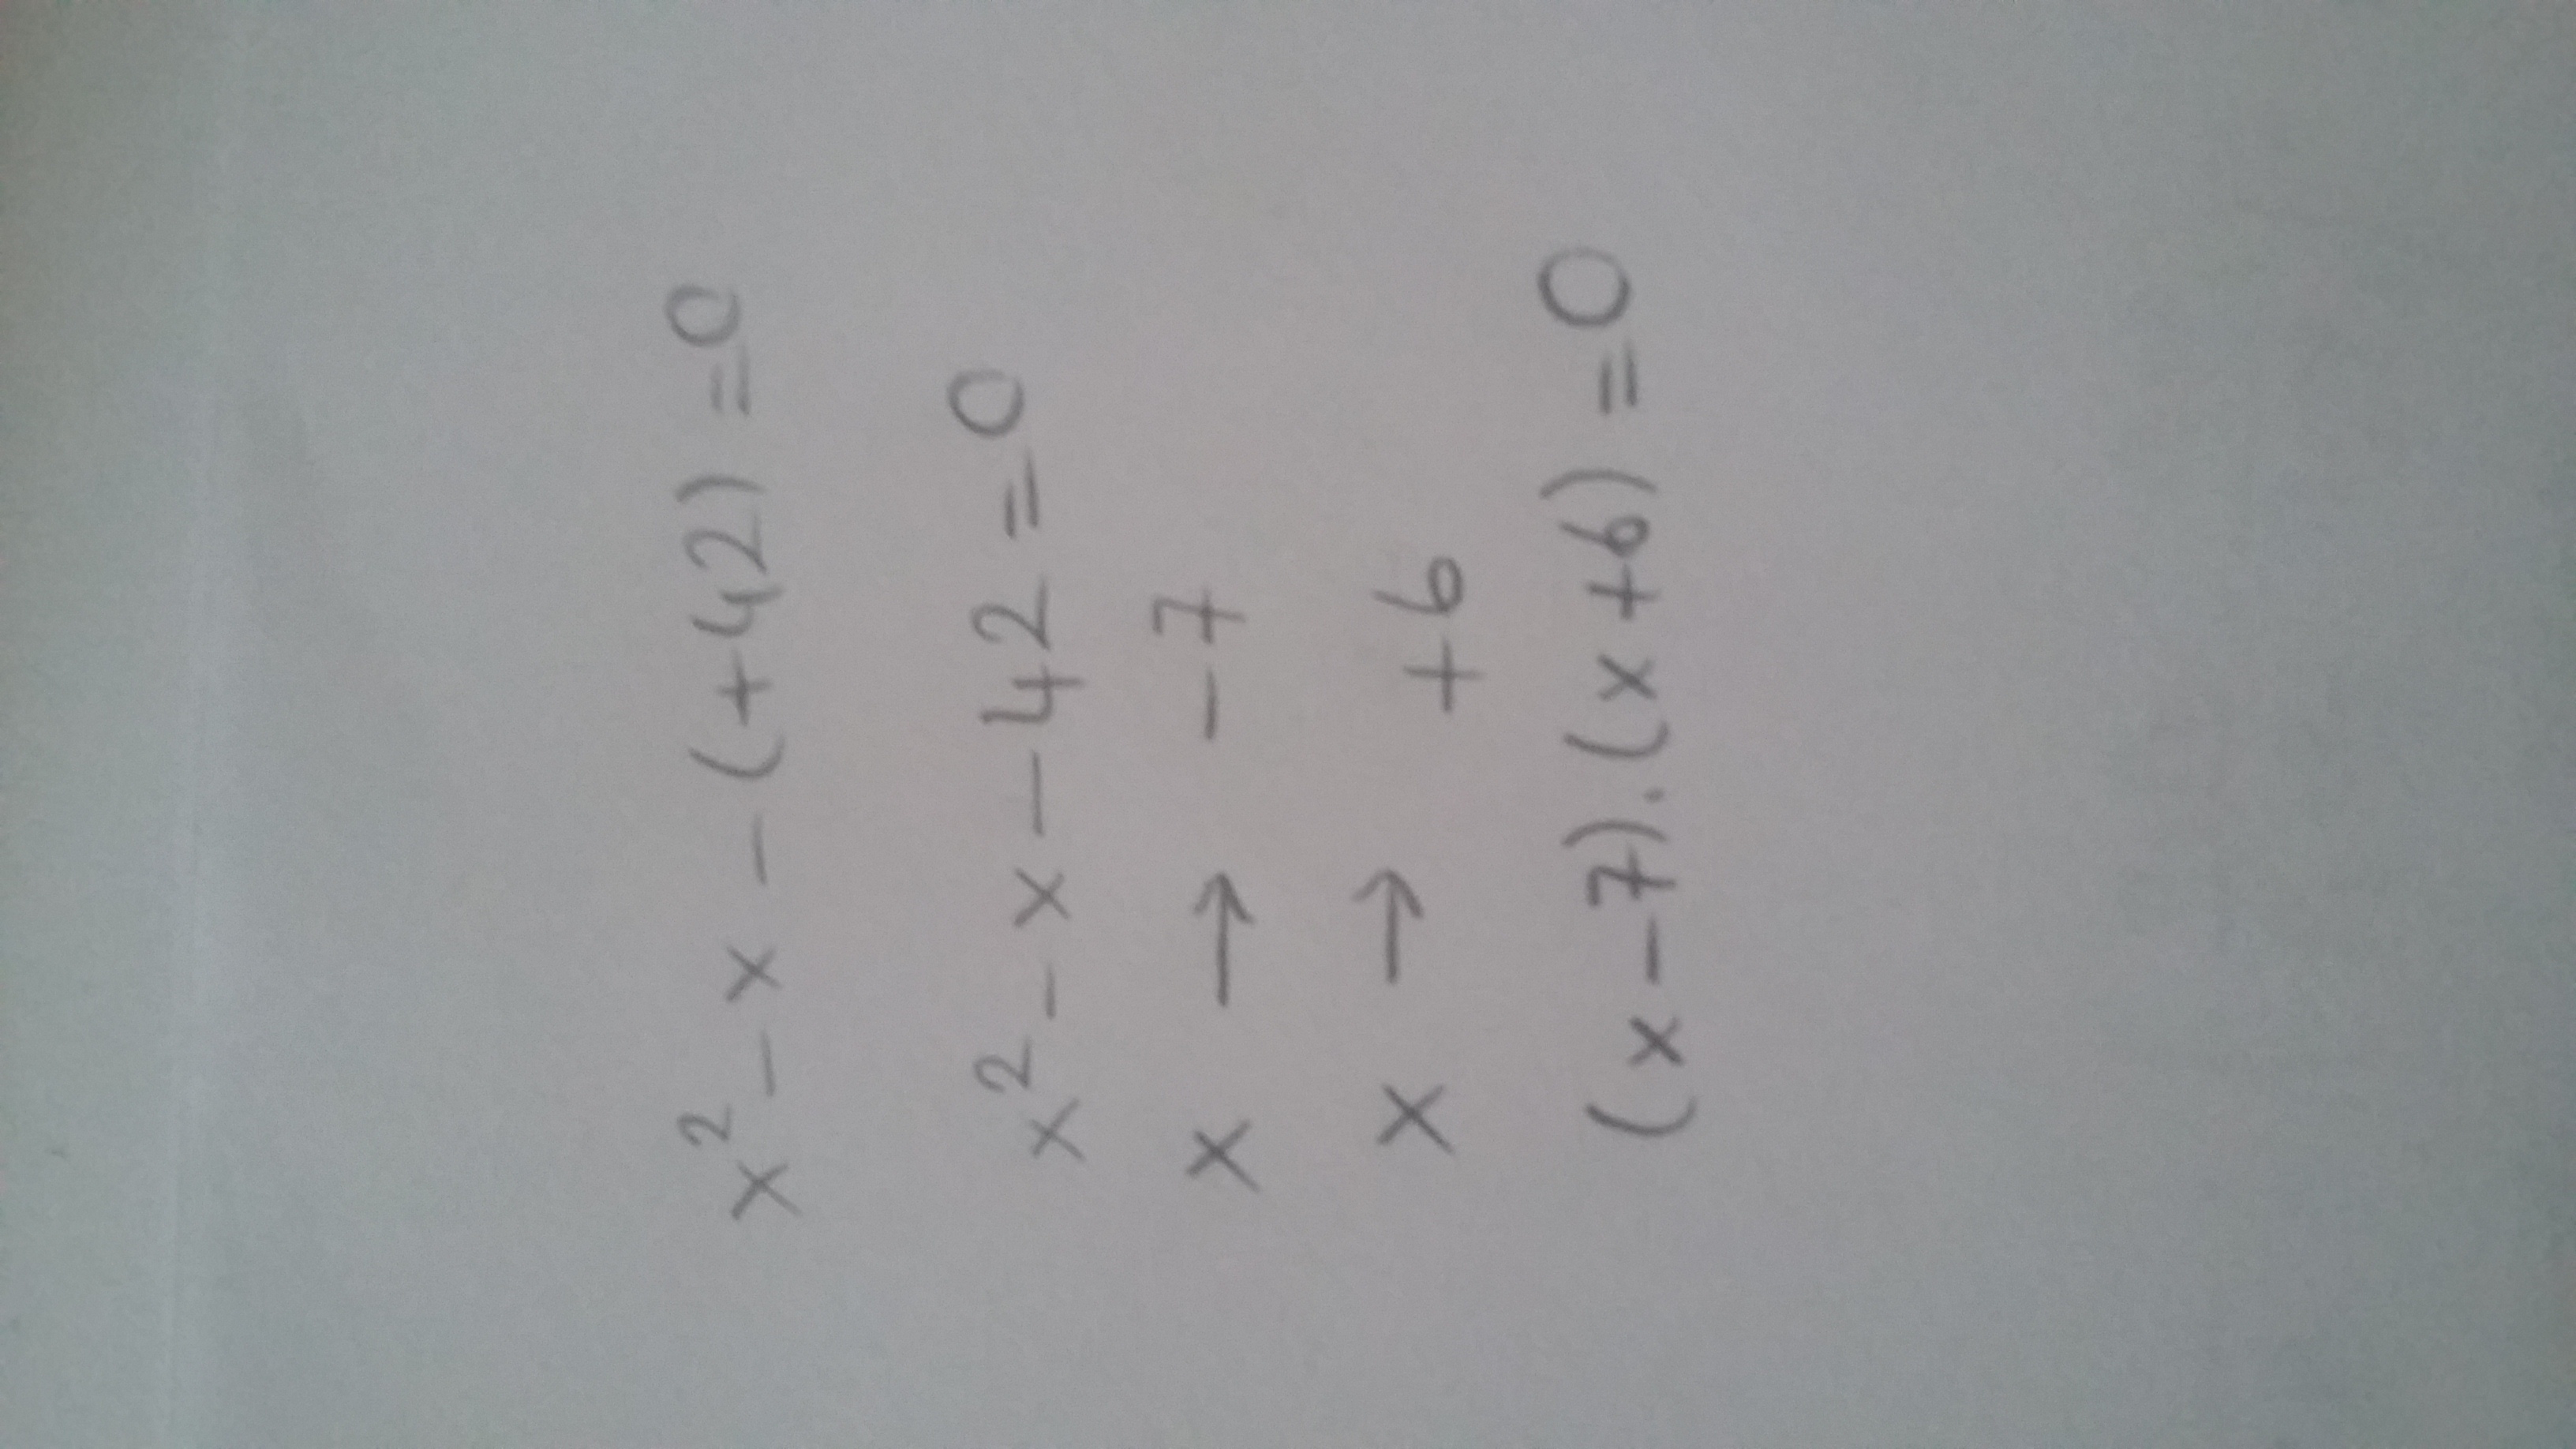 x² - x - (+42) = 0
x² - x - 42 = 0
x → -7
x → +6
(x - 7) . (x + 6) = 0